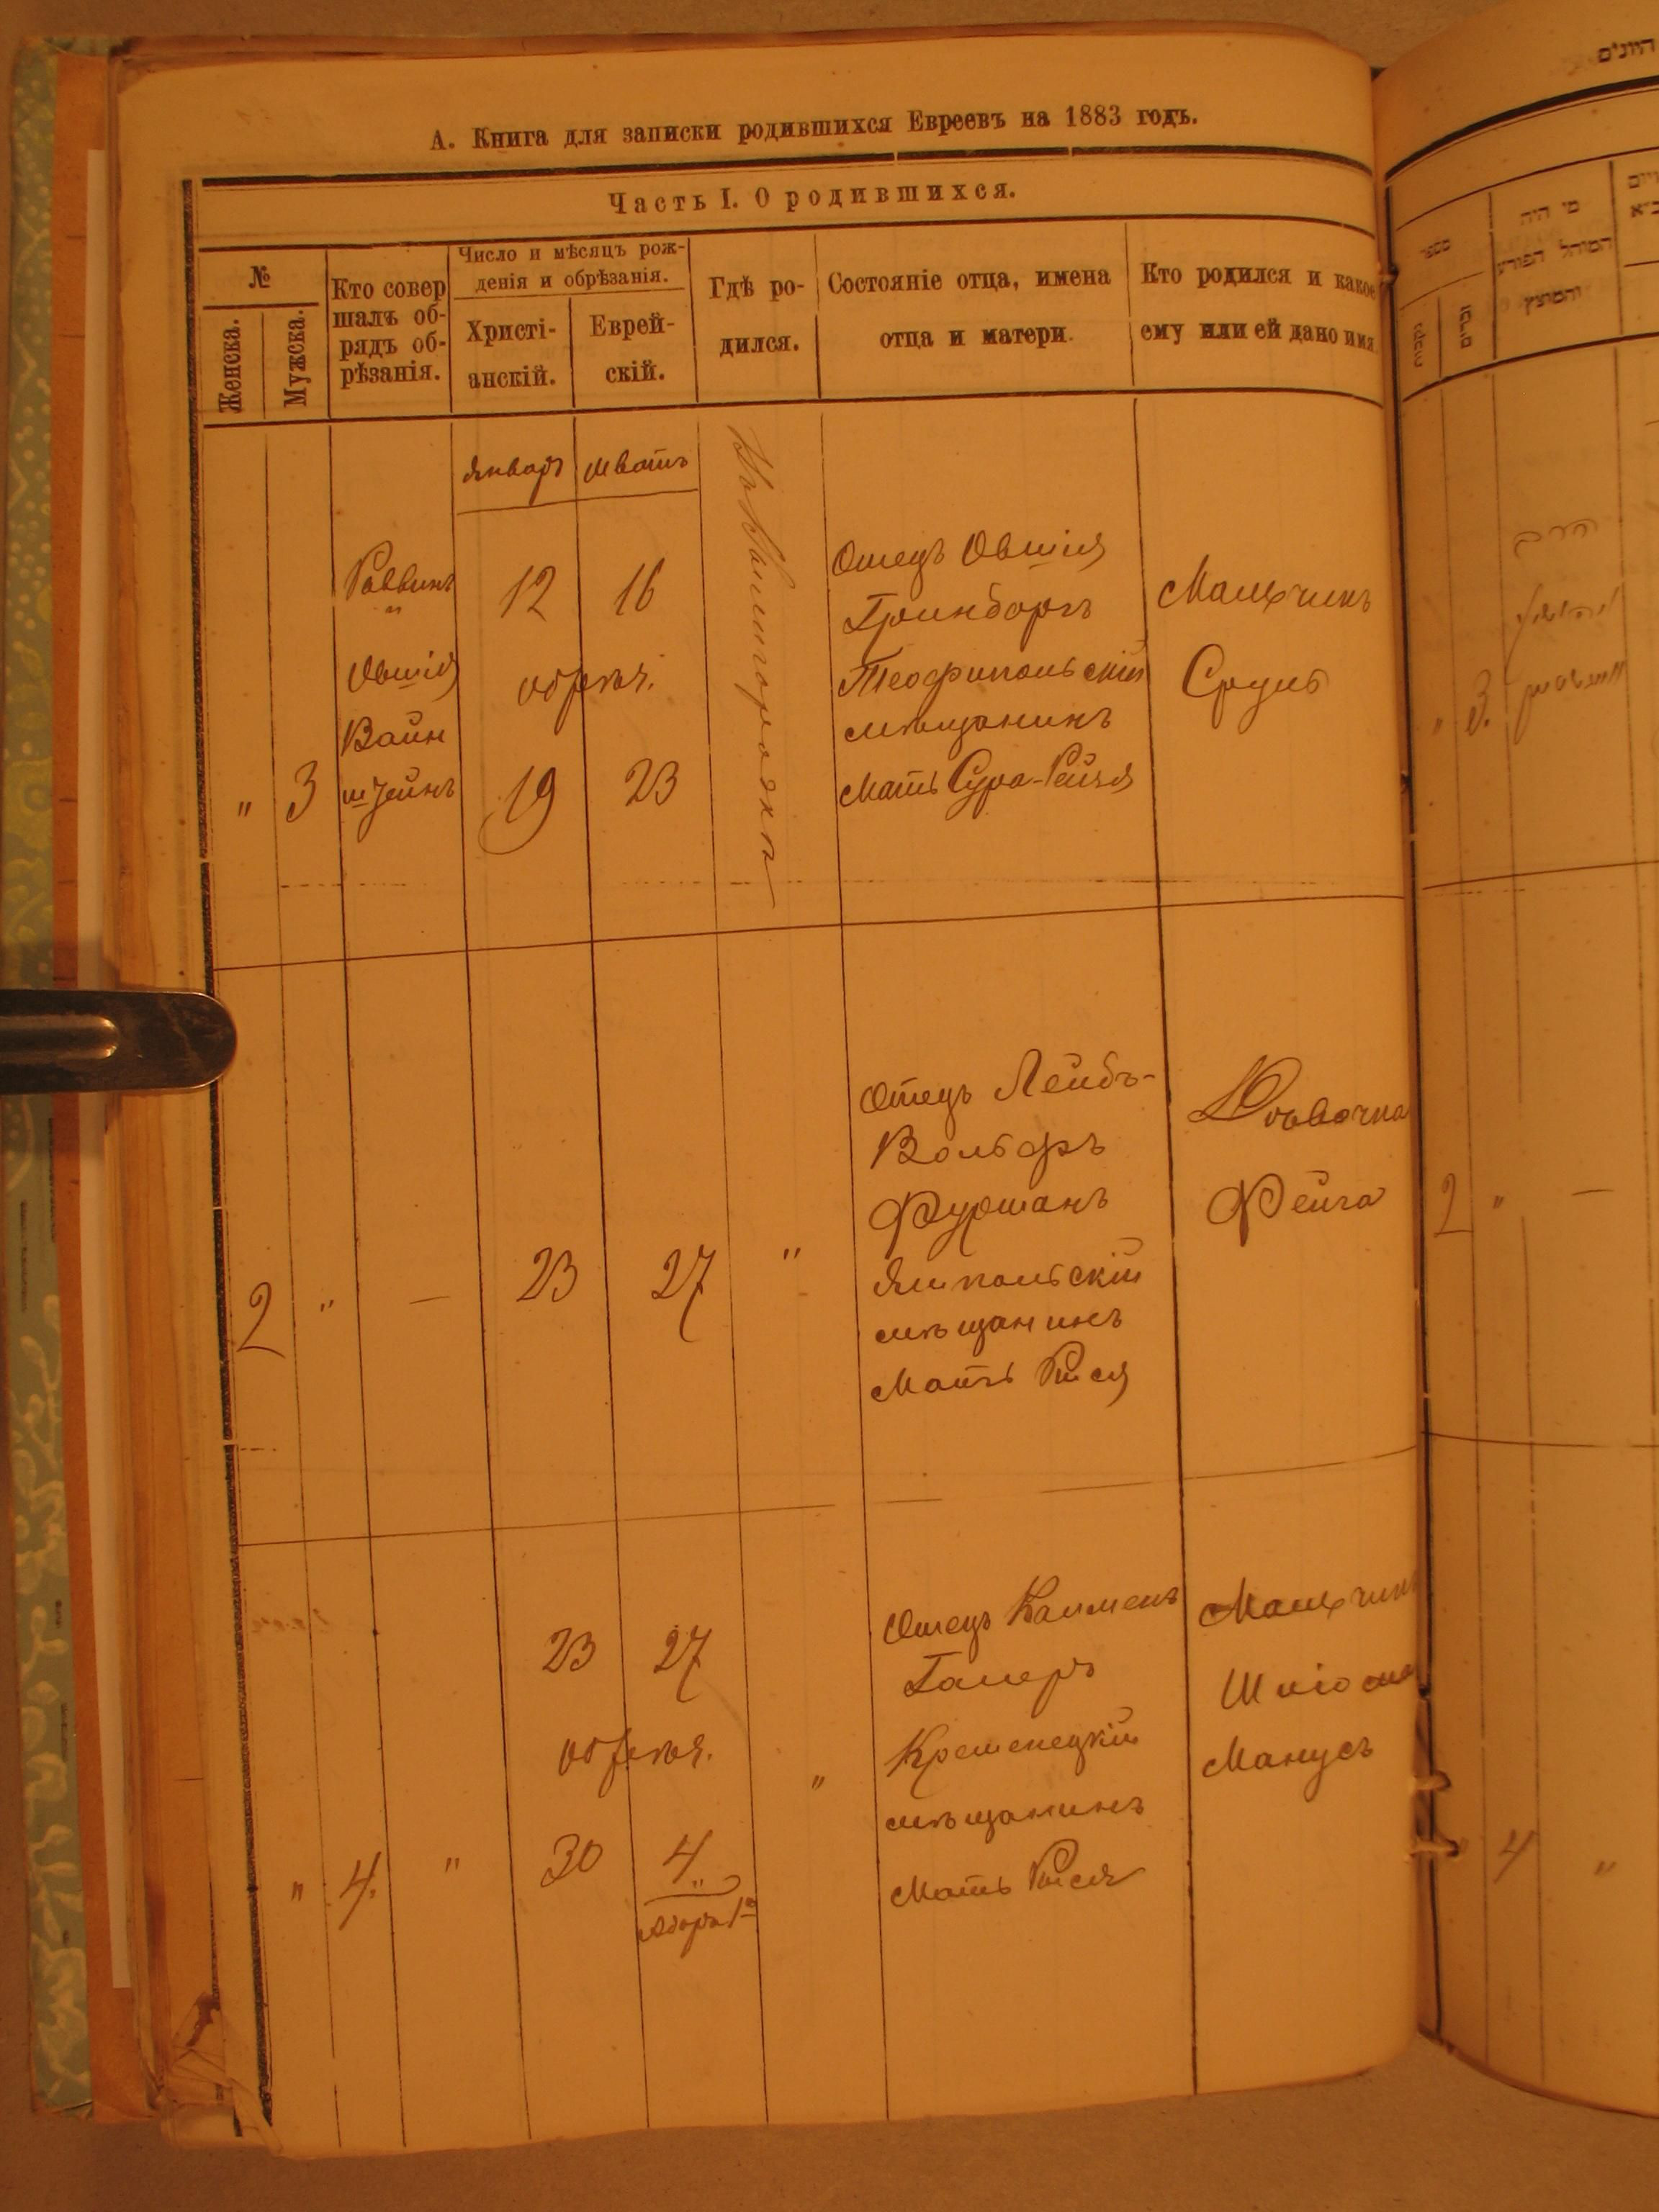 А. Книга для записки родившихся Евреевъ на 1883 годъ.
Часть I. О родившихся.
№
Женска.
Мужска.
Кто совер
шалъ об-
рядъ об-
рѣзанія.
Число и мѣсяцъ рож-
денія и обрѣзанія.
Христі-
анскій.
Еврей-
скій.
Гдѣ ро-
дился.
Состояніе отца, имена
отца и матери.
Кто родился и какое
ему или ей дано имя
январь
шватъ
" 3
Раввинъ
Овшія
Вайн
штейнъ
12 16
обрѣз.
19 23
Отецъ Овшія
Гринбергъ
Теофипольскій
мѣщанинъ
Мать Сура-Рейзя
Мальчикъ
Сруль
2 " — 23 27 "
Отецъ Лейбъ-
Вольфъ
Фурманъ
Ямпольскій
мѣщанинъ
Мать Рися
Дѣвочка
Фейга
" 4. "
23 27
обрѣз.
30 4
Адара 1го
"
Отецъ Кальменъ
Галеръ
Кременецкій
мѣщанинъ
Мать Рися
Мальчикъ
Шліома
Манусъ
מספר
נקבות
זכרים
מי היה
המוהל הפורע
והמוצץ
" 3.
2 " —
4 "